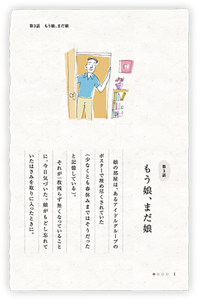 第3話 もう娘、まだ娘
第3話
もう娘、まだ娘
娘の部屋は、あるアイドルグループの
ポスターで埋め尽くされていた
（少なくとも春休みまではそうだった
と記憶している）。
それが一枚残らず無くなっていること
に、今日気づいた。娘がもどし忘れて
いたはさみを取りに入ったときに。
1